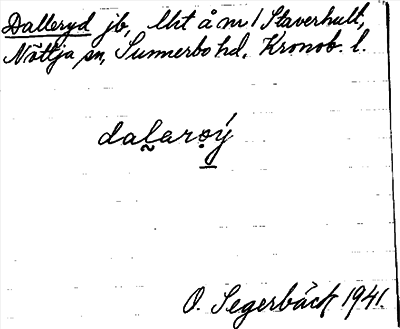 Dalleryd jb, lht å m/ Staverhult,
Nöttja sn, Sunnerbo hd. Kronob. l.
dal̰arọý̲
O. Segerbäck 1941.